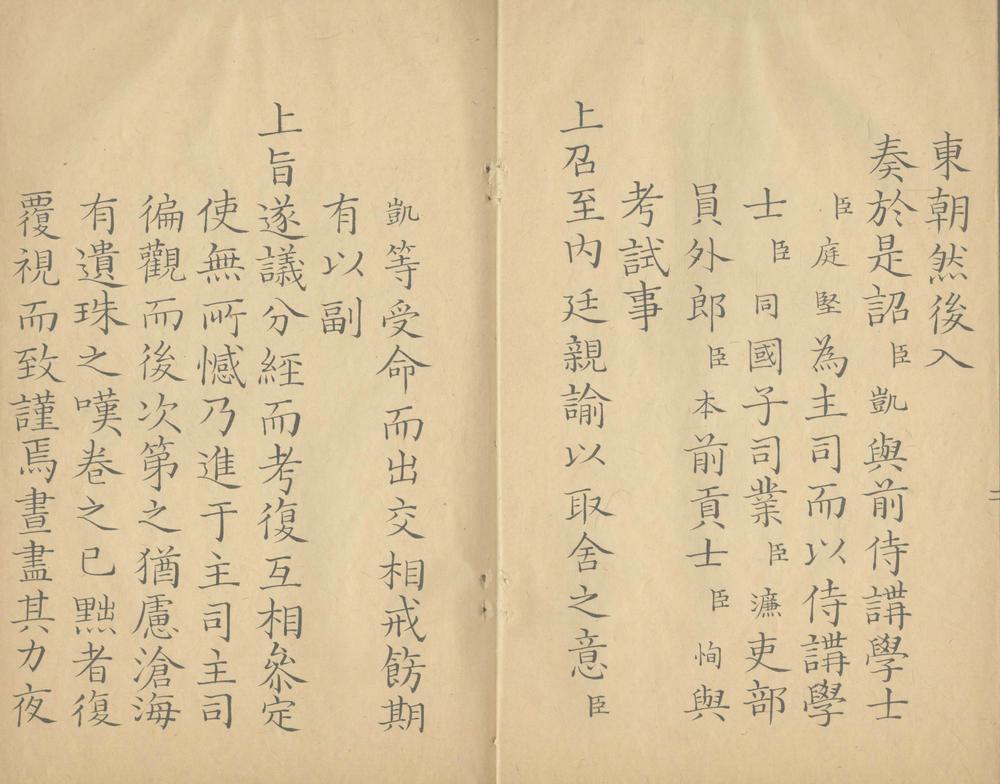 東朝然後入
奏於是詔臣凱與前侍講學士
臣庭堅為主司而以侍講學
士臣同國子司業臣濂吏部
員外郎臣本前貢士臣恂與
考試事
上召至內廷親諭以取舍之意臣
凱等受命而出交相戒飭期
有以副
上旨遂議分經而考復互相叅定
使無所憾乃進于主司主司
徧觀而後次第之猶慮滄海
有遺珠之嘆卷之已黜者復
覆視而致謹焉晝盡其力夜